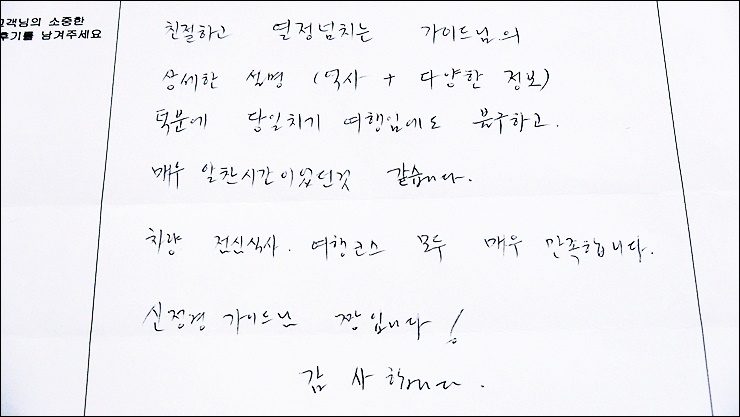 고객님의 소중한
후기를 남겨주세요
친절하고 열정넘치는 가이드님의
상세한 설명 (역사 + 다양한 정보)
덕분에 당일치기 여행임에도 불구하고.
매우 알찬시간이었던것 같습니다.
차량 점심식사. 여행코스 모두 매우 만족합니다.
신정경 가이드님 짱입니다!
감사합니다.